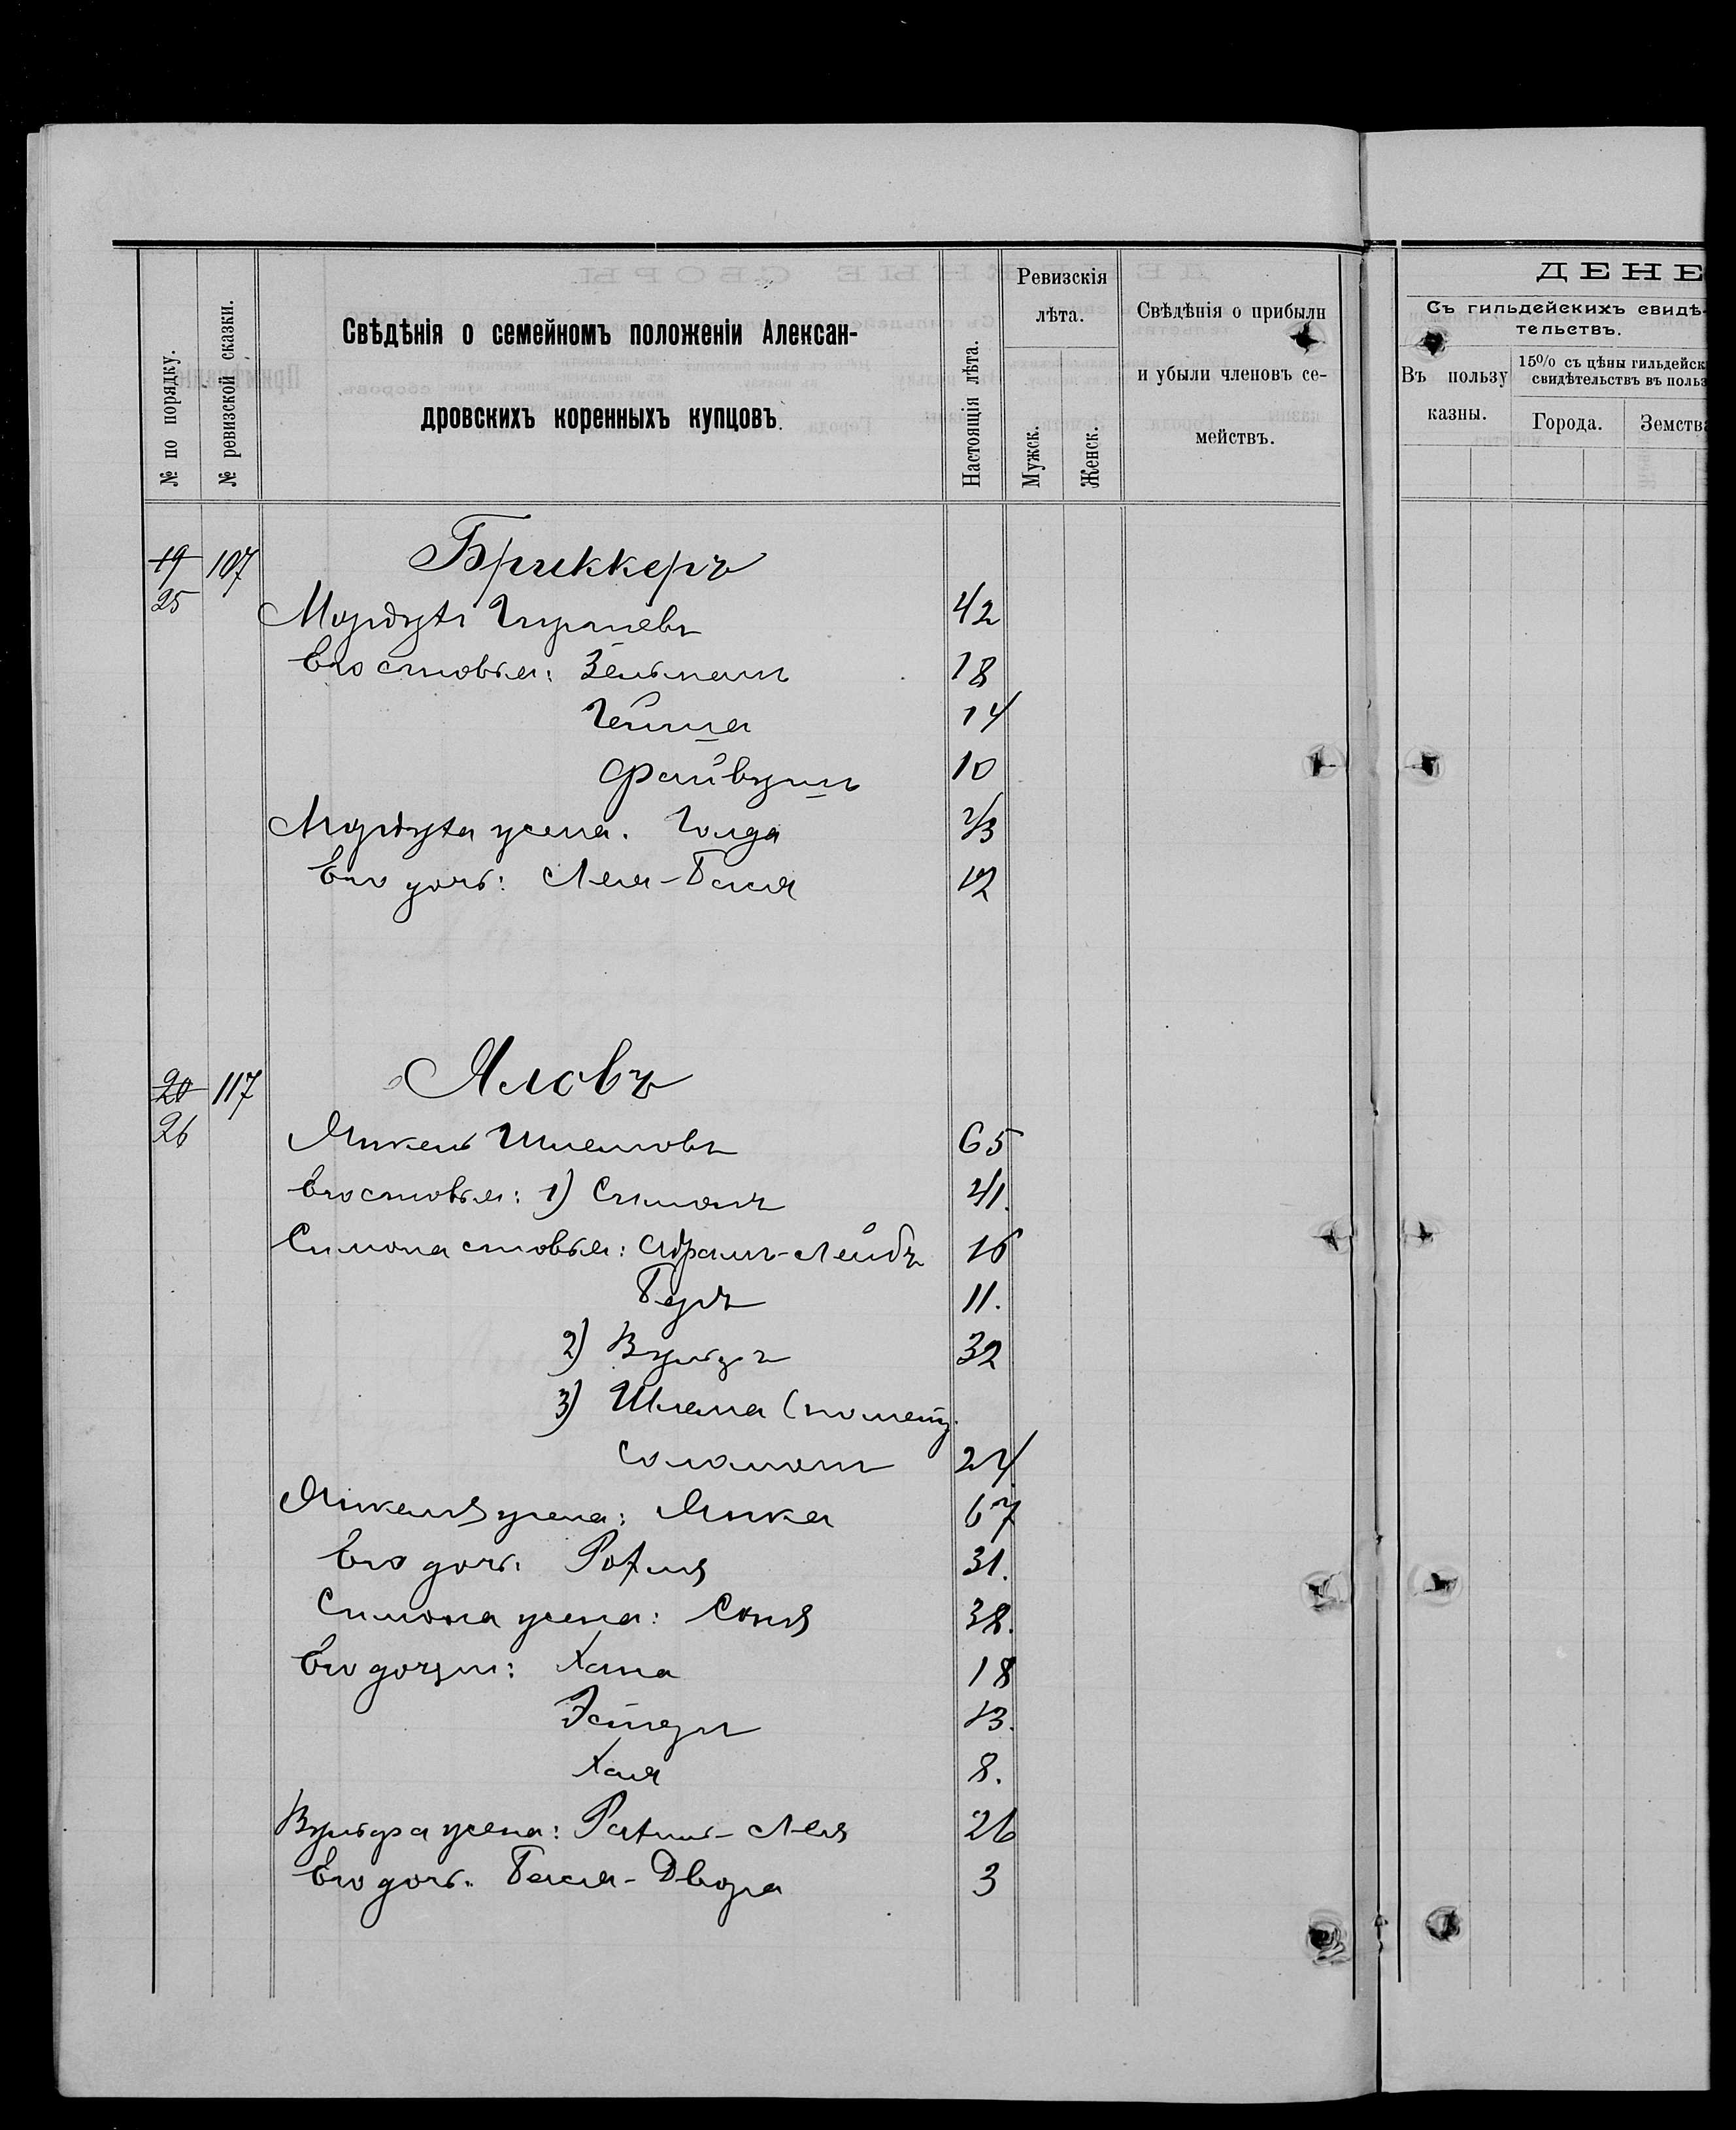 № по порядку.
№ ревизской сказки.
Свѣдѣнія о семейномъ положеніи Алексан-
дровскихъ коренныхъ купцовъ.
Настоящія лѣта.
Ревизскія
лѣта.
Мужск.
Женск.
Свѣдѣнія о прибыли
и убыли членовъ се-
мействъ.
ДЕНЕ
Съ гильдейскихъ свидѣ-
тельствъ.
Въ пользу
казны.
15% съ цѣны гильдейск
свидѣтельствъ въ польз
Города.
Земства
19 107 Бриккеръ
25
Мордухъ Гиршевъ 42
Его сыновья: Зельманъ 18
Гейша 14
Файвушъ 10
Мордуха жена. Голда 43
Его дочь: Лея-Бася 12
20 117 Яловъ
26
Михель Шлемовъ 65
Его сыновья: 1) Симонъ 41.
Симона сыновья: Абрамъ-Лейбъ 16
Беръ 11.
2) Вульфъ 32
3) Шлема (по метр.
Соломонъ 24
Михеля жена: Мика 67
Его дочь: Рохля 31.
Симона жена: Соня 38.
Его дочери: Хана 18
Эстеръ 13.
Хая 8.
Вульфа жена: Рахиль-Лея 26
Его дочь: Бася-Двора 3